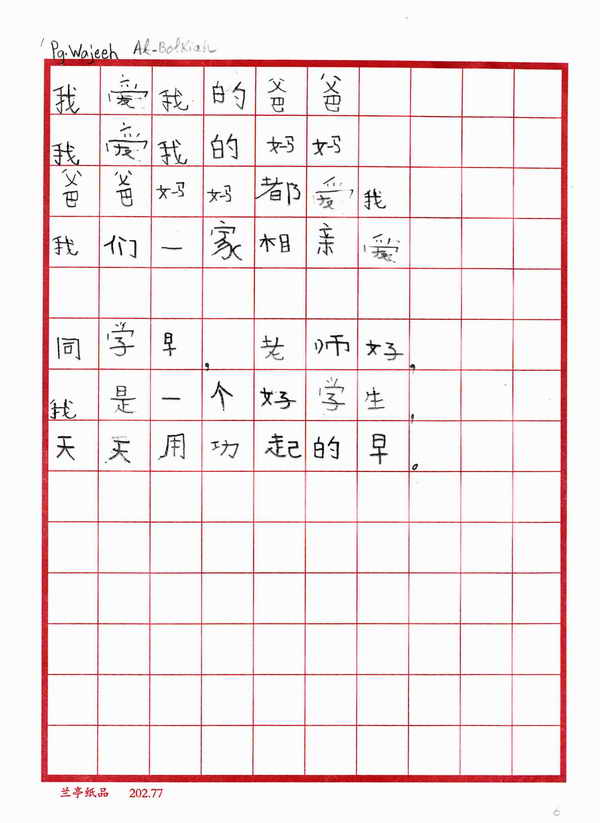 Pg. Wajeeh Ak-Bolkiah
我爱我的爸爸
我爱我的妈妈
爸爸妈妈都爱我
我们一家相亲爱
同学早，老师好，
我是一个好学生，
天天用功起的早。
兰亭纸品 202.77